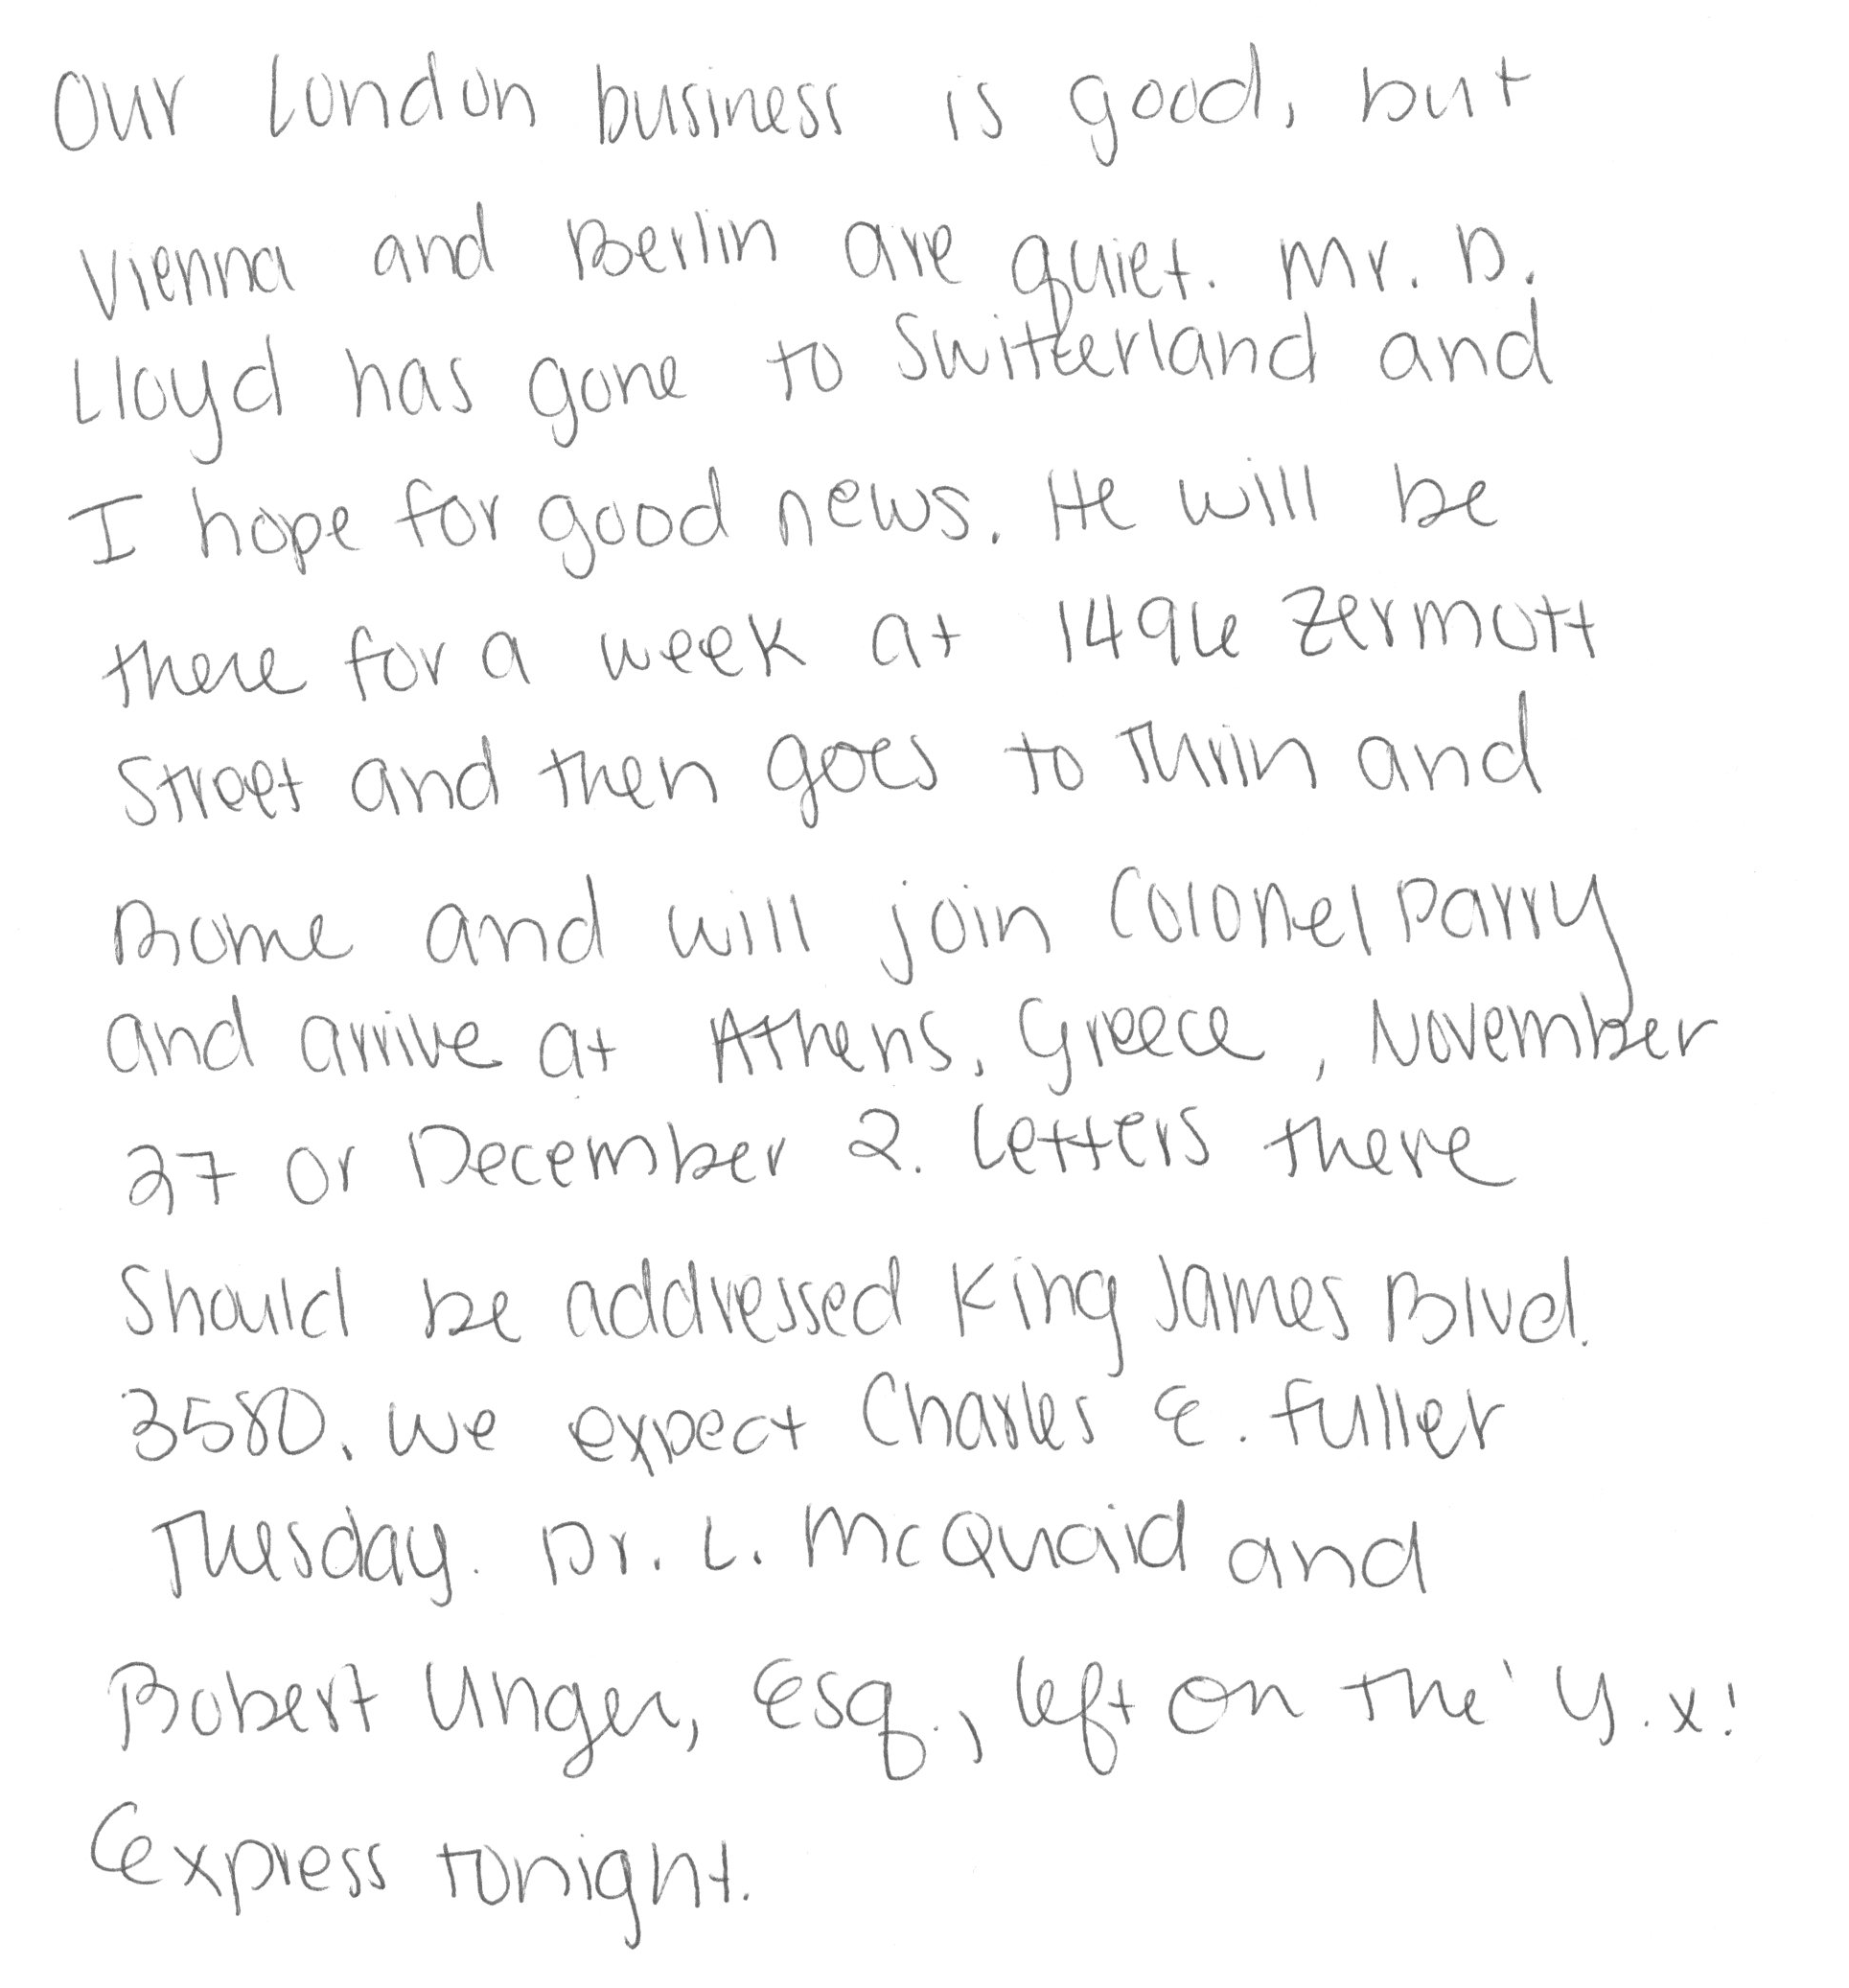 Our London business is good, but
Vienna and Berlin are quiet. Mr. D.
Lloyd has gone to Switzerland and
I hope for good news. He will be
there for a week at 1496 Zermott
Street and then goes to Turin and
Rome and will join Colonel Parry
and arrive at Athens, Greece, November
27 or December 2. Letters there
Should be addressed King James Blvd.
3580. We expect Charles E. Fuller
Tuesday. Dr. L. McQuaid and
Robert Unger, Esq., left on the 'Y.X.'
Express tonight.